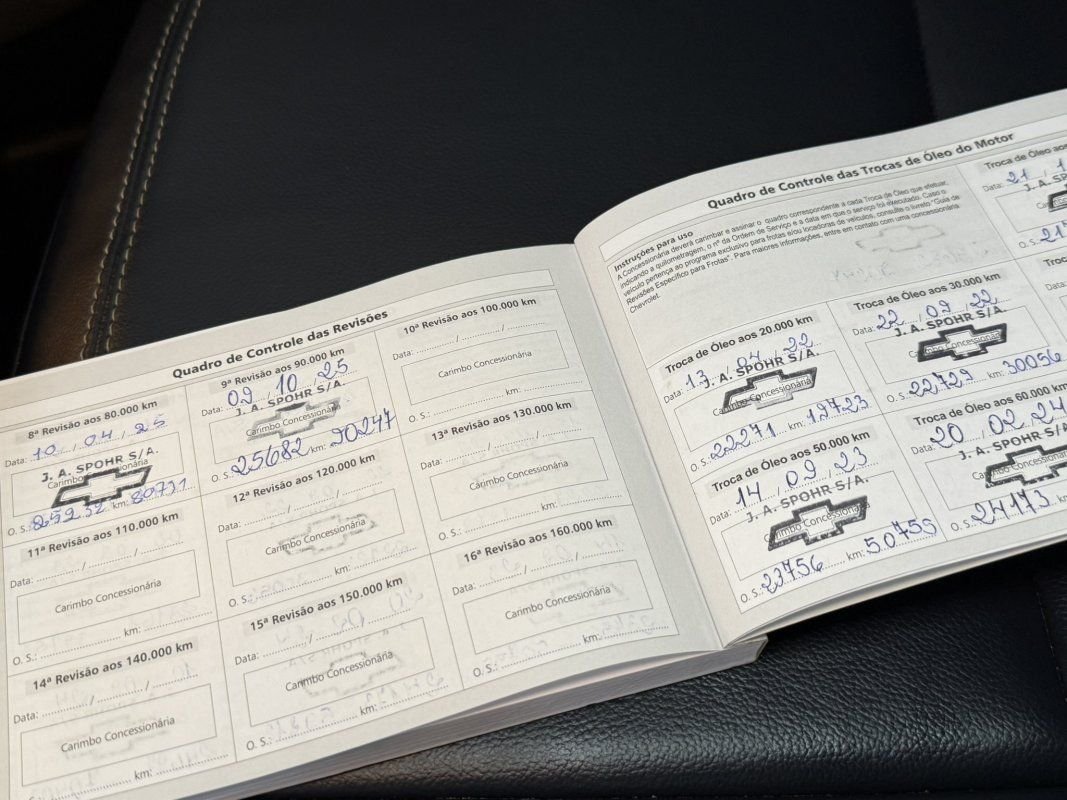 Quadro de Controle das Revisões
8ª Revisão aos 80.000 km
Data: 10 / 04 / 25
J. A. SPOHR S/A.
Carimbo Concessionária
O. S.: 25232 km: 80731
9ª Revisão aos 90.000 km
Data: 09 / 10 / 25
J. A. SPOHR S/A.
Carimbo Concessionária
O. S.: 25682 km: 90247
10ª Revisão aos 100.000 km
Data: / /
Carimbo Concessionária
O. S.: km:
11ª Revisão aos 110.000 km
Data: / /
Carimbo Concessionária
O. S.: km:
12ª Revisão aos 120.000 km
Data: / /
Carimbo Concessionária
O. S.: km:
13ª Revisão aos 130.000 km
Data: / /
Carimbo Concessionária
O. S.: km:
14ª Revisão aos 140.000 km
Data: / /
Carimbo Concessionária
O. S.: km:
15ª Revisão aos 150.000 km
Data: / /
Carimbo Concessionária
O. S.: km:
16ª Revisão aos 160.000 km
Data: / /
Carimbo Concessionária
O. S.: km:
Quadro de Controle das Trocas de Óleo do Motor
Instruções para uso
A Concessionária deverá carimbar e assinar o quadro correspondente a cada Troca de Óleo que efetuar,
indicando a quilometragem, o nº da Ordem de Serviço e a data em que o serviço foi executado. Caso o
veículo pertença ao programa exclusivo para frotas e/ou locadoras de veículos, consulte o livreto "Guia de
Revisões Específico para Frotas". Para maiores informações, entre em contato com uma concessionária
Chevrolet.
Troca de Óleo aos
Data: 21 /
J. A. SP
O. S.: 21
Troca de Óleo aos 20.000 km
Data: 13 / 04 / 22
J. A. SPOHR S/A.
Carimbo Concessionária
O. S.: 22271 km: 19723
Troca de Óleo aos 30.000 km
Data: 22 / 09 / 22
J. A. SPOHR S/A.
Carimbo Concessionária
O. S.: 22729 km: 30056
Troc
Data:
O. S.:
Troca de Óleo aos 50.000 km
Data: 14 / 09 / 23
J. A. SPOHR S/A.
Carimbo Concessionária
O. S.: 23756 km: 50755
Troca de Óleo aos 60.000 km
Data: 20 / 02 / 24
J. A. SPOHR S/A
Carimbo Concessionária
O. S.: 24173 km